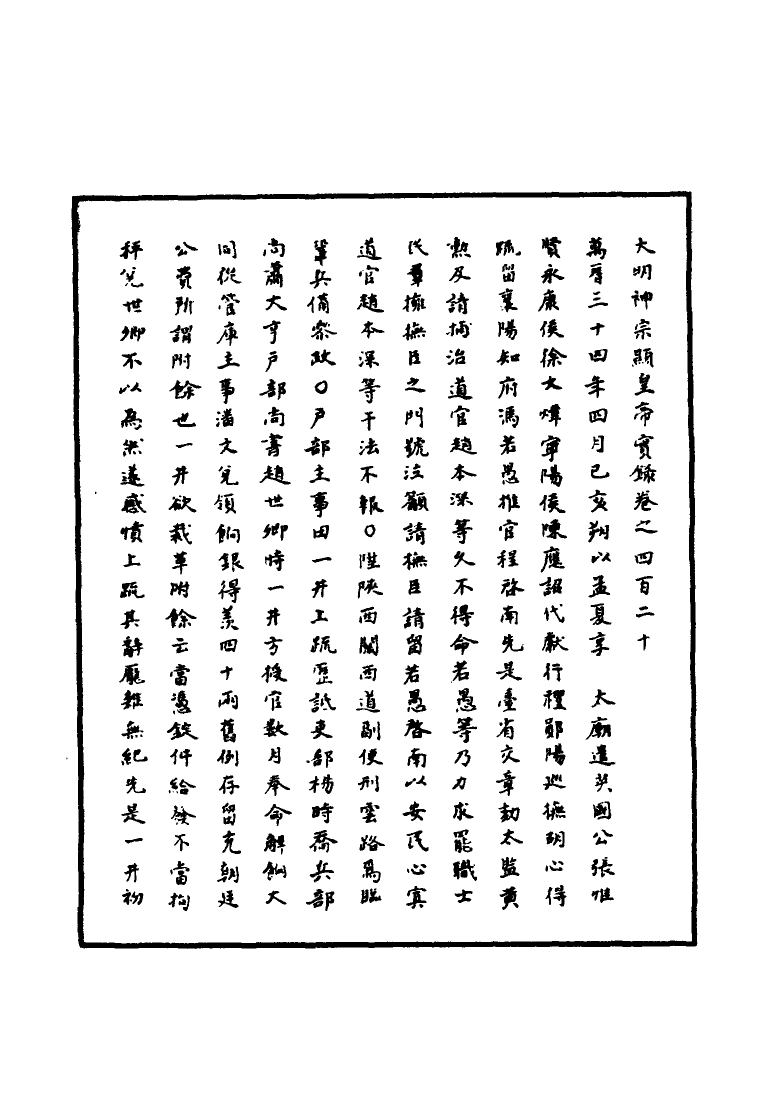 大明神宗顯皇帝實錄卷之四百二十
萬曆三十四年四月己亥朔以孟夏享　太廟遣英國公張惟
賢永康侯徐文煒寧陽侯陳應詔代獻行禮鄖陽巡撫胡心得
疏留襄陽知府馮若愚推官程啓南先是臺省交章劾太監黃
勲及請捕治道官趙本深等久不得命若愚等乃力求罷職士
民羣擁撫臣之門號泣籲請撫臣請留若愚啓南以安民心寘
道官趙本深等于法不報○陞陝西關西道副使刑雲路爲臨
鞏兵備叅政○戶部主事田一井上疏歷詆吏部楊時喬兵部
尚蕭大亨戶部尚書趙世卿時一井方授官數月奉命解餉大
同從管庫主事潘文兌領餉銀得羨四十兩舊例存留充朝廷
公費所謂附餘也一井欲裁革附餘云當憑錠件給發不當拘
秤兌世卿不以爲然遂感憤上疏其辭厖雜無紀先是一井初